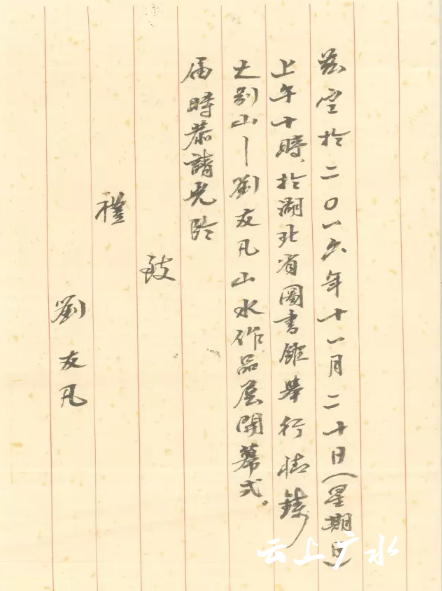 茲定於二〇一六年十一月二十日（星期日）
上午十時，於湖北省圖書館舉行情鑄
大別山—劉友凡山水作品展開幕式。
屆時恭請光臨
致
禮
劉友凡
云上广水